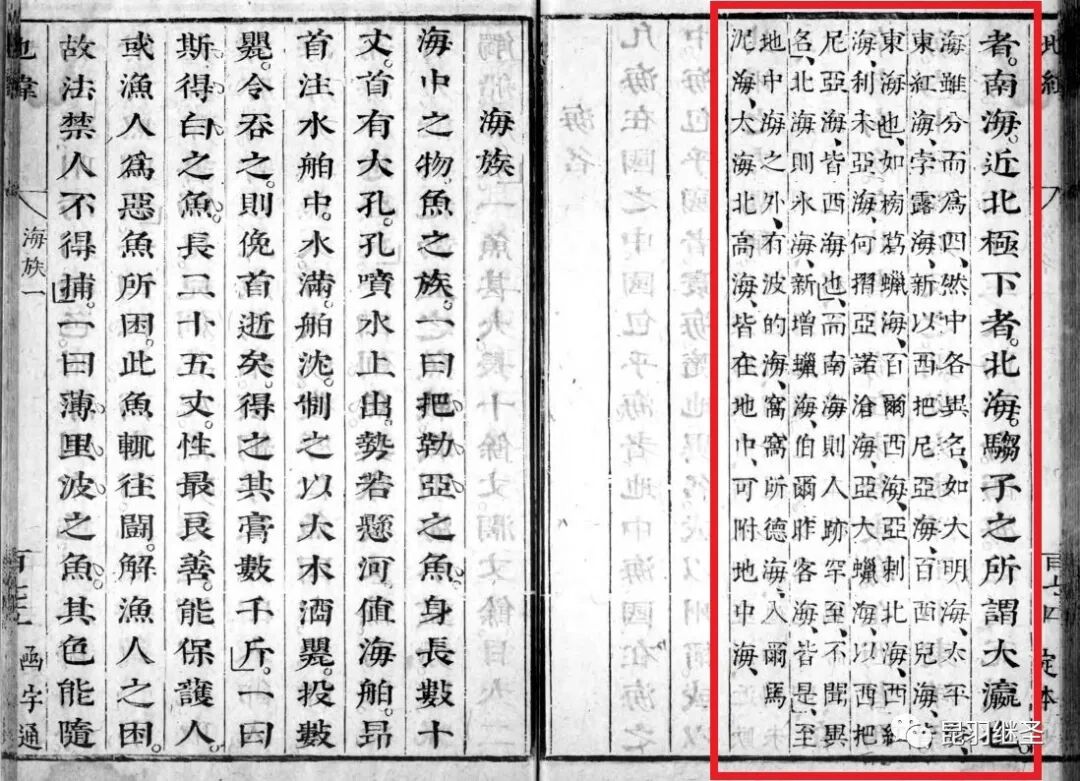 者。南海。近北極下者。北海。騶子之所謂大瀛也。
海雖分而爲四、然中各異名、如大明海、太平
東紅海、孛露海、新以西把尼亞海、百西兒海、
東海也、如榜葛蠟海、百爾西海、亞剌北海、西紅
海、利未亞海、何摺亞諾滄海、亞大蠟海、以西把
尼亞海、皆西海也、而南海則人跡罕至、不聞異
名、北海則氷海、新增蠟海、伯爾昨客海、皆是、至
地中海之外、有波的海、窩窩所德海、入爾馬
泥海、太海、北高海、皆在地中、可附地中海、
海族
海中之物。魚之族。一曰把勒亞之魚。身長數十
丈。首有大孔。孔噴水上出。勢若懸河。值海舶。昂
首注水舶中。水滿。舶沈。制之以大木酒甖。投數
甖。令吞之。則俛首逝矣。得之其膏數千斤。一曰
斯得白之魚。長二十五丈。性最良善。能保護人。
或漁人爲惡魚所困。此魚輒往鬪。解漁人之困。
故法禁人不得捕。一曰薄里波之魚。其色能隨
地緯
海族一
函宇通
昆羽继圣